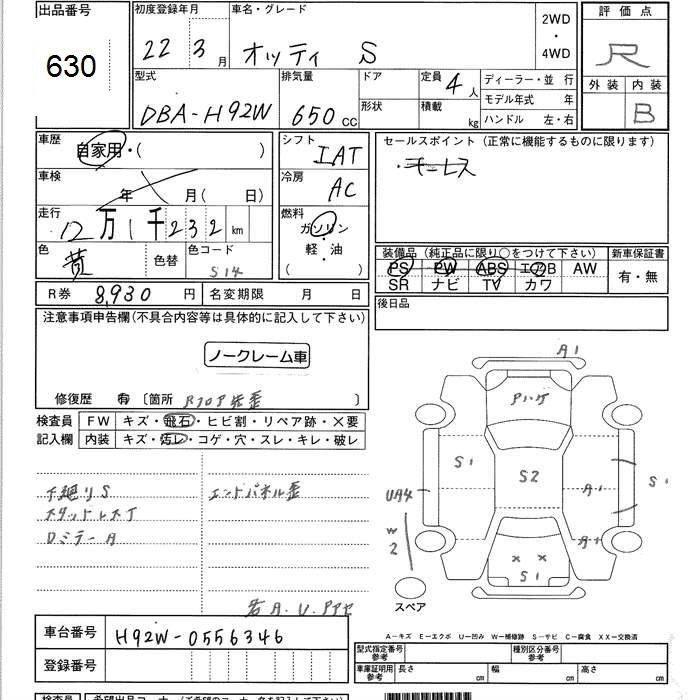 出品番号 初度登録年月 車名・グレード 2WD・4WD 評価点
630 22 3月 オッティ S R
型式 排気量 ドア 定員 4人 ディーラー・並 行 外装 内装
DBA-H92W 650cc 形状 積載 kg モデル年式 年 B
ハンドル 左・右
車歴 自家用・( ) シフト IAT セールスポイント (正常に機能するものに限ります)
・キーレス
車検 年 月( 日) 冷房 AC
走行 12万1千232km 燃料 ガソリン・軽・油( )
色 黄 色替 色コード S14
装備品 (純正品に限り○をつけて下さい) 新車保証書
PS PW ABS エアB AW 有・無
SR ナビ TV カワ
R券 8,930円 名変期限 月 日 後日品
注意事項申告欄(不具合内容等は具体的に記入して下さい)
ノークレーム車
修復歴 有 〔箇所 Rフロア先歪 〕
検査員 FW キズ・飛石・ヒビ割・リペア跡・×要
記入欄 内装 キズ・汚レ・コゲ・穴・スレ・キレ・破レ
下廻りS エンドパネル歪
スタッドレス
A1
Pハゲ
S1 S2 A1 S1
UA4
W2 A1
× ×
S1
スペア
A-キズ E-エクボ U-凹み W-補修跡 S-サビ C-腐食 XX-交換済
車台番号 H92W-0556346
型式指定番号 参考 種別区分番号 参考
登録番号
車庫証明用 参考 長さ cm 幅 cm 高さ cm